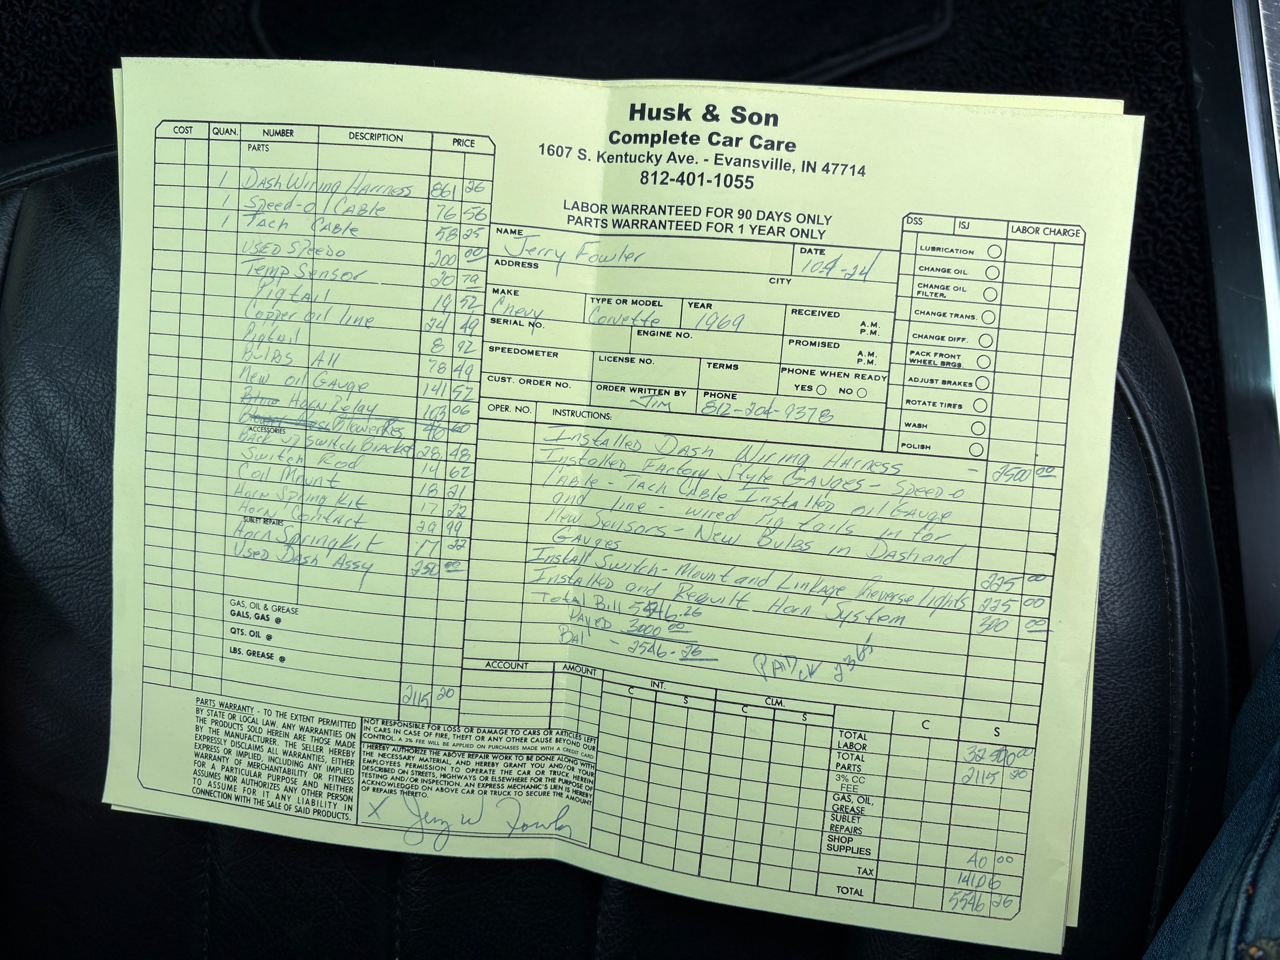 Husk & Son
Complete Car Care
1607 S. Kentucky Ave. - Evansville, IN 47714
812-401-1055
LABOR WARRANTEED FOR 90 DAYS ONLY
PARTS WARRANTEED FOR 1 YEAR ONLY
COST QUAN. NUMBER DESCRIPTION PRICE
PARTS
1 Dash Wiring Harness 861 26
1 Speed-o CABLE 76 56
1 Tach CABLE 58 25
USED Speedo 200 00
Temp Sensor 20 79
Pigtail 19 52
Copper oil line 24 49
Pigtail 8 92
Bulbs All 78 49
New oil Gauge 141 52
Horn Relay 103 06
Blower Res
ACCESSORIES
Back up Switch Bracket 28 48
Switch Rod 14 62
Coil Mount 18 21
Horn Spring Kit 17 22
Horn Contact 29 99
SUBLET REPAIRS
Horn Spring Kit 17 22
Used Dash Assy 250 00
GAS, OIL & GREASE
GALS, GAS @
QTS. OIL @
LBS. GREASE @
2115 20
NAME Jerry Fowler
DATE 10-4-24
ADDRESS
CITY
MAKE Chevy
TYPE OR MODEL Corvette
YEAR 1969
RECEIVED A.M. P.M.
SERIAL NO.
ENGINE NO.
PROMISED A.M. P.M.
SPEEDOMETER
LICENSE NO.
TERMS
PHONE WHEN READY
YES NO
CUST. ORDER NO.
ORDER WRITTEN BY Jim
PHONE 812-204-9378
DSS ISJ LABOR CHARGE
LUBRICATION
CHANGE OIL
CHANGE OIL FILTER,
CHANGE TRANS.
CHANGE DIFF.
PACK FRONT WHEEL BRGS.
ADJUST BRAKES
ROTATE TIRES
WASH
POLISH
OPER. NO. INSTRUCTIONS:
Installed Dash Wiring Harness - 2500 00
Installed Factory Style Gauges - Speed-o
CABLE - Tach CABLE Installed oil Gauge
and line - wired Pig tails in for
New Sensors - New Bulbs in Dash and
Gauges 225 00
Install Switch - Mount and Linkage Reverse lights 225 00
Installed and Rebuilt Horn System 300 00
Total Bill 5546.26
Payed 3000 00
Bal - 2546 - 26
PAID
ACCOUNT AMOUNT
INT. C S
CLM. C S
C S
TOTAL LABOR
TOTAL PARTS 2115 20
3% CC FEE
GAS, OIL, GREASE
SUBLET REPAIRS
SHOP SUPPLIES 40 00
TAX 141 06
TOTAL 5546 26
PARTS WARRANTY - TO THE EXTENT PERMITTED
BY STATE OR LOCAL LAW, ANY WARRANTIES ON
THE PRODUCTS SOLD HEREIN ARE THOSE MADE
BY THE MANUFACTURER. THE SELLER HEREBY
EXPRESSLY DISCLAIMS ALL WARRANTIES, EITHER
EXPRESS OR IMPLIED, INCLUDING ANY IMPLIED
WARRANTY OF MERCHANTABILITY OR FITNESS
FOR A PARTICULAR PURPOSE AND NEITHER
ASSUMES NOR AUTHORIZES ANY OTHER PERSON
TO ASSUME FOR IT ANY LIABILITY IN
CONNECTION WITH THE SALE OF SAID PRODUCTS.
NOT RESPONSIBLE FOR LOSS OR DAMAGE TO CARS OR ARTICLES LEFT
IN CARS IN CASE OF FIRE, THEFT OR ANY OTHER CAUSE BEYOND OUR
CONTROL. A 3% FEE WILL BE APPLIED ON PURCHASES MADE WITH A CREDIT CARD.
I HEREBY AUTHORIZE THE ABOVE REPAIR WORK TO BE DONE ALONG WITH
THE NECESSARY MATERIAL, AND HEREBY GRANT YOU AND/OR YOUR
EMPLOYEES PERMISSION TO OPERATE THE CAR OR TRUCK HEREIN
DESCRIBED ON STREETS, HIGHWAYS OR ELSEWHERE FOR THE PURPOSE OF
TESTING AND/OR INSPECTION. AN EXPRESS MECHANIC'S LIEN IS HEREBY
ACKNOWLEDGED ON ABOVE CAR OR TRUCK TO SECURE THE AMOUNT
OF REPAIRS THERETO.
X Jerry W Fowler